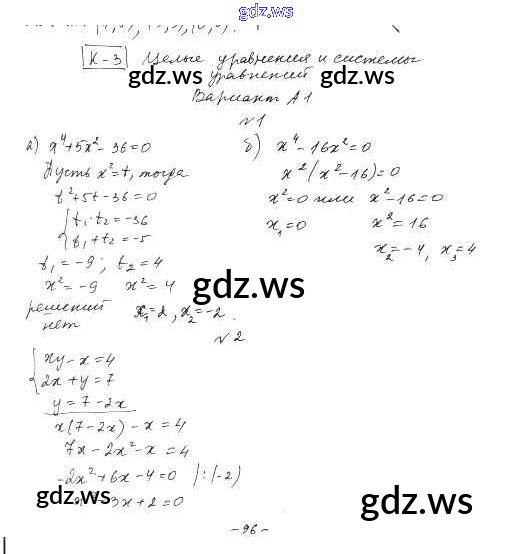 gdz.ws
К-3 Целые уравнения и системы
уравнений
gdz.ws gdz.ws
Вариант А1
№1
а) x⁴+5x²-36=0
Пусть x²=t, тогда
t²+5t-36=0
{ t₁·t₂=-36
t₁+t₂=-5
t₁=-9; t₂=4
x²=-9 x²=4
решений
нет
x₁=2, x₂=-2.
б) x⁴-16x²=0
x²(x²-16)=0
x²=0 или x²-16=0
x₁=0 x²=16
x₂=-4, x₃=4
gdz.ws
№2
{ xy-x=4
2x+y=7
y=7-2x
x(7-2x)-x=4
7x-2x²-x=4
-2x²+6x-4=0 |:(-2)
x²-3x+2=0
gdz.ws gdz.ws
-96-